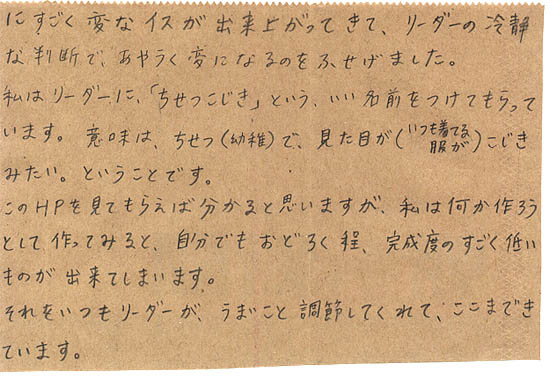 にすごく変なイスが出来上がってきて、リーダーの冷静
な判断で、あやうく変になるのをふせげました。
私はリーダーに、「ちせつこじき」という、いい名前をつけてもらって
います。意味は、ちせつ(幼稚)で、見た目が(いつも着てる服が)こじき
みたい。ということです。
このHPを見てもらえば分かると思いますが、私は何か作ろう
として作ってみると、自分でもおどろく程、完成度のすごく低い
ものが出来てしまいます。
それをいつもリーダーが、うまいこと調節してくれて、ここまでき
ています。